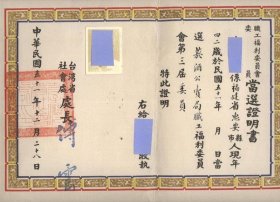 職工福利委員會委員當選證明書
係福建省惠安縣市人現年
四二歲於民國五十一年 月 日當
選菸酒公賣局職工福利委員
會第三屆委員
特此證明
右給 收執
台灣省
社會處處長
中華民國五十一年十二月二十八日